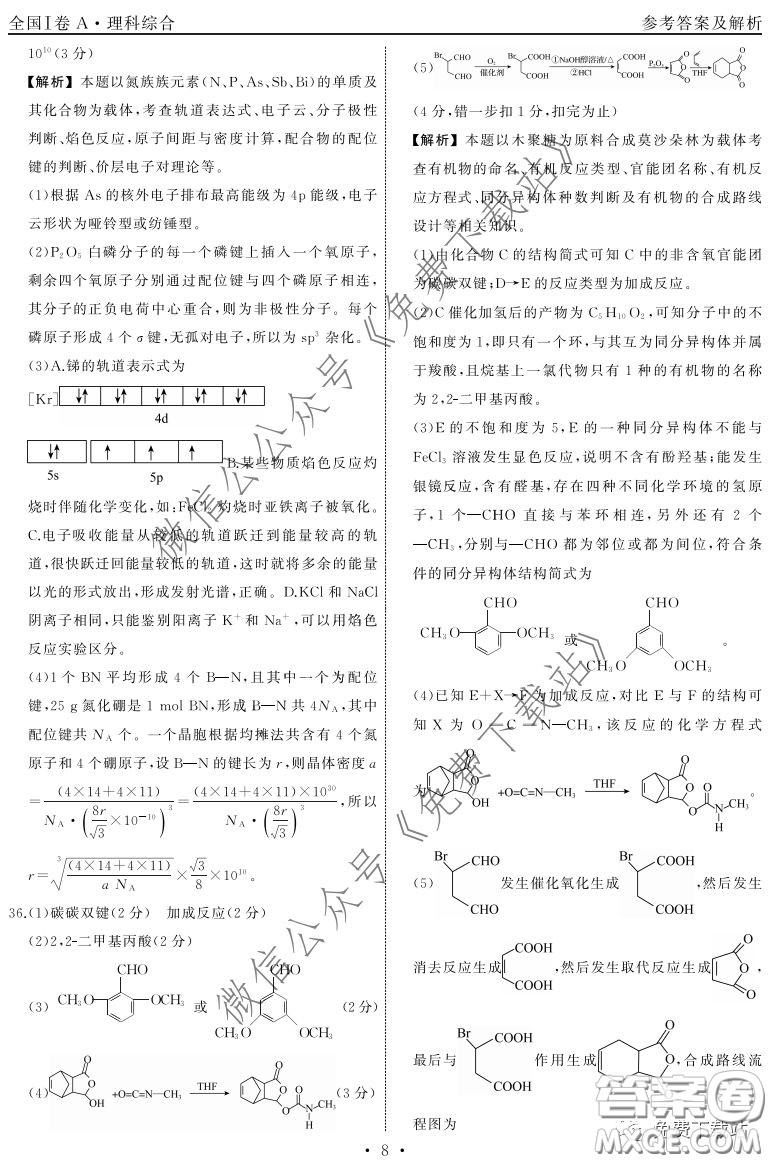 全国Ⅰ卷 A·理科综合
参考答案及解析
10¹⁰(3 分)
【解析】本题以氮族族元素(N、P、As、Sb、Bi)的单质及
其化合物为载体,考查轨道表达式、电子云、分子极性
判断、焰色反应,原子间距与密度计算,配合物的配位
键的判断、价层电子对理论等。
(1)根据 As 的核外电子排布最高能级为 4p 能级,电子
云形状为哑铃型或纺锤型。
(2)P₂O₅ 白磷分子的每一个磷键上插入一个氧原子,
剩余四个氧原子分别通过配位键与四个磷原子相连,
其分子的正负电荷中心重合,则为非极性分子。每个
磷原子形成 4 个 σ键,无孤对电子,所以为 sp³ 杂化。
(3)A.锑的轨道表示式为
[Kr]
4d
5s 5p B.某些物质焰色反应灼
烧时伴随化学变化,如:FeCl₂ 灼烧时亚铁离子被氧化。
C.电子吸收能量从较低的轨道跃迁到能量较高的轨
道,很快跃迁回能量较低的轨道,这时就将多余的能量
以光的形式放出,形成发射光谱,正确。D.KCl 和 NaCl
阴离子相同,只能鉴别阳离子 K⁺和 Na⁺,可以用焰色
反应实验区分。
(4)1 个 BN 平均形成 4 个 B—N,且其中一个为配位
键,25 g 氮化硼是 1 mol BN,形成 B—N 共 4Nₐ,其中
配位键共 Nₐ 个。一个晶胞根据均摊法共含有 4 个氮
原子和 4 个硼原子,设 B—N 的键长为 r,则晶体密度 a
=(4×14+4×11)/(Nₐ·(8r/√3×10⁻¹⁰)³)=(4×14+4×11)×10³⁰/(Nₐ·(8r/√3)³),所以
r=³√((4×14+4×11)/(a Nₐ))×√3/8×10¹⁰。
36.(1)碳碳双键(2 分) 加成反应(2 分)
(2)2,2-二甲基丙酸(2 分)
(3) CHO CH₃O OCH₃ 或 CHO CH₃O OCH₃ (2 分)
(4) O O OH +O=C=N—CH₃ THF O O O O N H CH₃ (3 分)
(5) Br CHO CHO O₂ 催化剂 Br COOH COOH ①NaOH醇溶液/△ ②HCl COOH COOH P₂O₅ O O O THF O O O
(4 分,错一步扣 1 分,扣完为止)
【解析】本题以木聚糖为原料合成莫沙朵林为载体考
查有机物的命名、有机反应类型、官能团名称、有机反
应方程式、同分异构体种数判断及有机物的合成路线
设计等相关知识。
(1)由化合物 C 的结构简式可知 C 中的非含氧官能团
为碳碳双键;D→E 的反应类型为加成反应。
(2)C 催化加氢后的产物为 C₅H₁₀O₂,可知分子中的不
饱和度为 1,即只有一个环,与其互为同分异构体并属
于羧酸,且烷基上一氯代物只有 1 种的有机物的名称
为 2,2-二甲基丙酸。
(3)E 的不饱和度为 5,E 的一种同分异构体不能与
FeCl₃ 溶液发生显色反应,说明不含有酚羟基;能发生
银镜反应,含有醛基,存在四种不同化学环境的氢原
子,1 个—CHO 直接与苯环相连,另外还有 2 个
—CH₃,分别与—CHO 都为邻位或都为间位,符合条
件的同分异构体结构简式为
CHO CH₃O OCH₃ 或 CHO CH₃O OCH₃ 。
(4)已知 E+X→F 为加成反应,对比 E 与 F 的结构可
知 X 为 O=C=N—CH₃,该反应的化学方程式
为 O O OH +O=C=N—CH₃ THF O O O O N H CH₃ 。
(5) Br CHO CHO 发生催化氧化生成 Br COOH COOH ,然后发生
消去反应生成 COOH COOH ,然后发生取代反应生成 O O O ,
最后与 Br COOH COOH 作用生成 O O O ,合成路线流
程图为
· 8 ·
微信公众号《免费下载站》
微信公众号《免费下载站》
答案圈
MXQE.COM
免费下载站